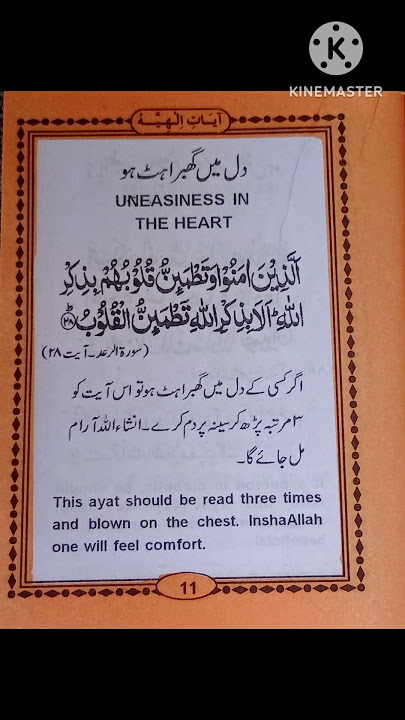 KINEMASTER
آیاتِ الٰہیّہ
دل میں گھبراہٹ ہو
UNEASINESS IN
THE HEART
اَلَّذِیْنَ اٰمَنُوْا وَتَطْمَىِٕنُّ قُلُوْبُهُمْ بِذِكْرِ
اللّٰهِ ؕ اَلَا بِذِكْرِ اللّٰهِ تَطْمَىِٕنُّ الْقُلُوْبُ ۲۸
(سورۃ الرعد۔ آیت ۲۸)
اگر کسی کے دل میں گھبراہٹ ہو تو اس آیت کو
۳ مرتبہ پڑھ کر سینہ پر دم کرے۔ انشاء اللہ آرام
مل جائے گا۔
This ayat should be read three times
and blown on the chest. InshaAllah
one will feel comfort.
11